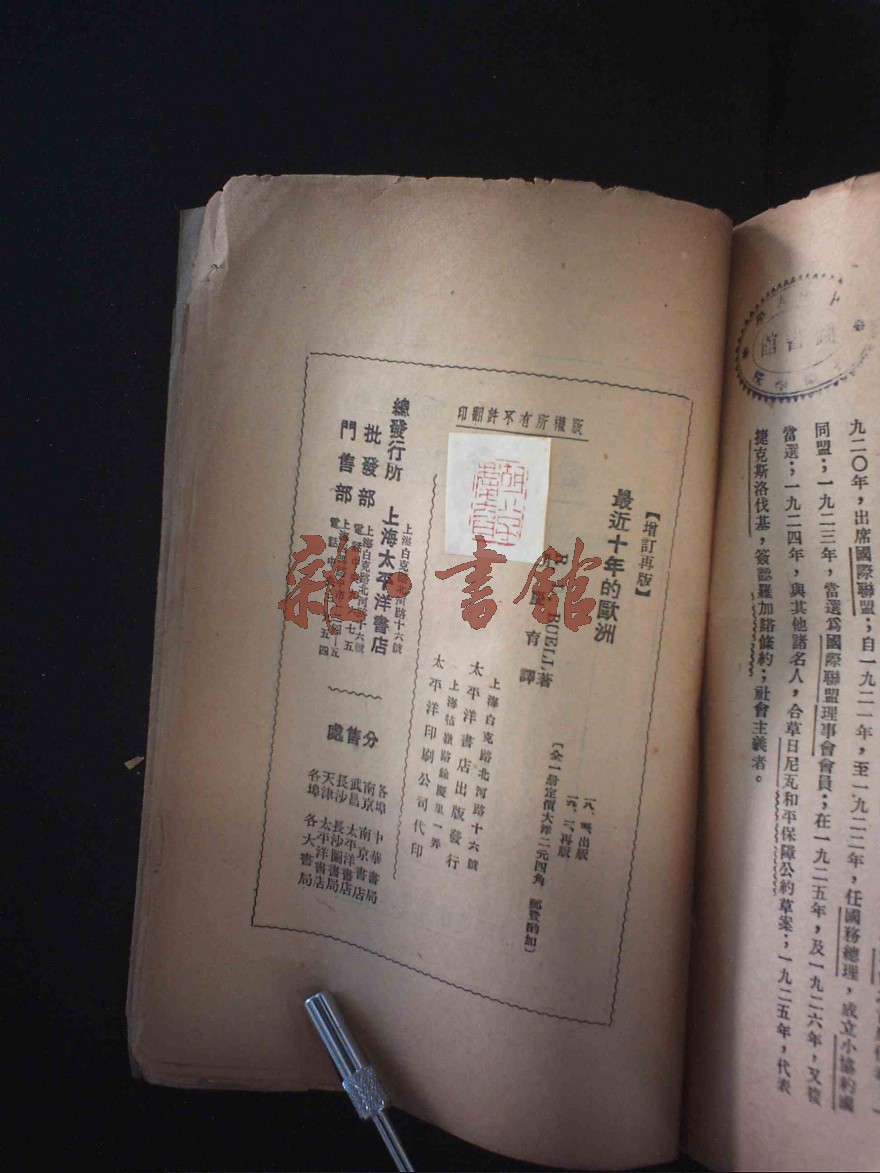 九二〇年，出席國際聯盟；自一九二一年，至一九二二年，任國務總理，成立小協約國
同盟；一九二三年，當選爲國際聯盟理事會會員；在一九二五年，及一九二六年，又被
當選；一九二四年，與其他諸名人，合草日尼瓦和平保障公約草案；一九二五年，代表
捷克斯洛伐基，簽認羅加諾條約；社會主義者。
書館
版權所有不許翻印
【增訂再版】
最近十年的歐洲
BUELL著
育譯
出版
再版
（全一册定價大洋二元四角 郵費酌加）
上海白克路北河路十六號
太平洋書店出版發行
上海牯嶺路餘慶里一弄
太平洋印刷公司代印
總發行所 上海太平洋書店
上海白克路北河路十六號
批發部
上海白克路北河路十六號
門售部
分售處
各埠 中華書局
南京 南京書店
武昌 太平洋書店
長沙 長沙圖書局
天津 太平洋書店
各埠 各大書局
雜·書館